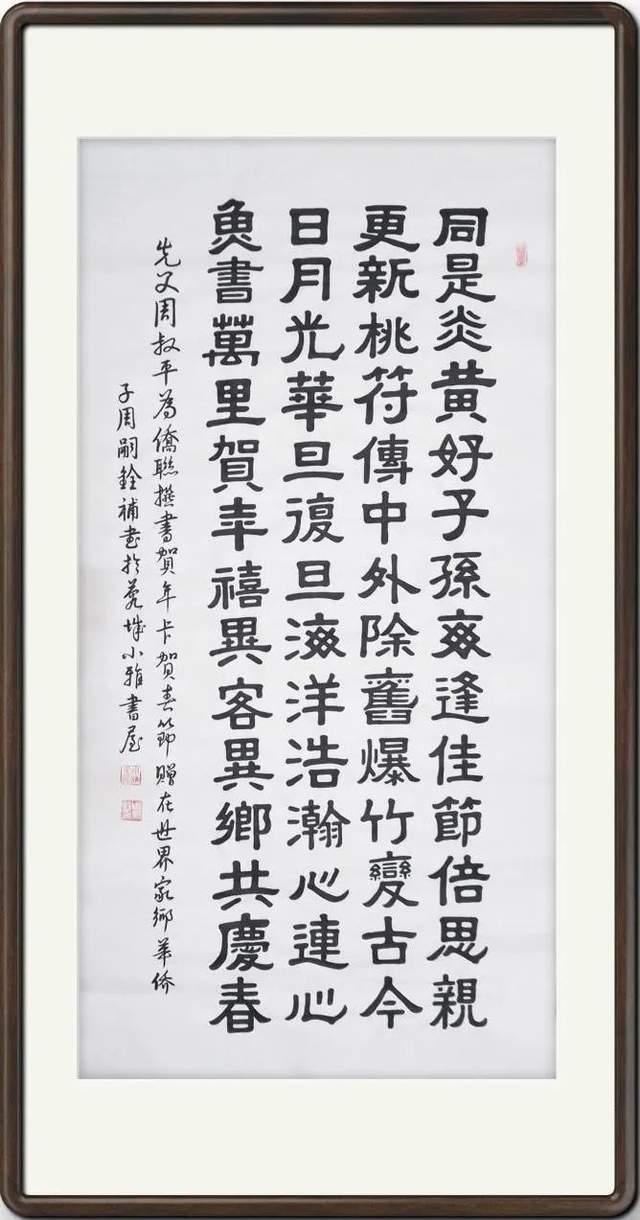 同是炎黄好子孫每逢佳節倍思親
更新桃符傳中外除舊爆竹變古今
日月光華旦復旦海洋浩瀚心連心
魚書萬里賀年禧異客異鄉共慶春
先父周叔平為僑聯撰書賀年卡賀春節贈在世界家鄉華僑
子周嗣銓補書於城小雅書屋